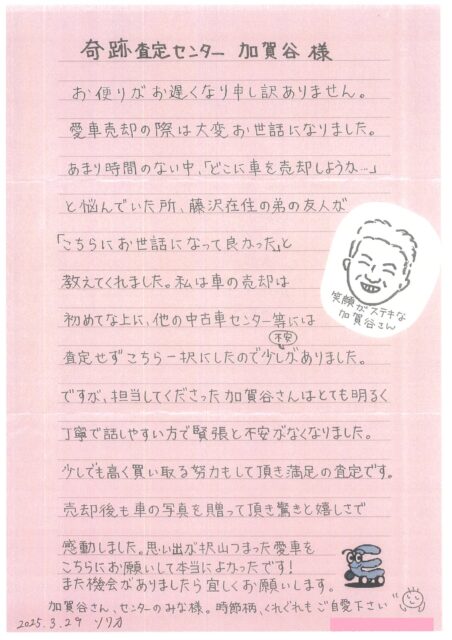 奇跡査定センター 加賀谷 様
お便りがお遅くなり申し訳ありません。
愛車売却の際は大変お世話になりました。
あまり時間のない中、「どこに車を売却しようか…」
と悩んでいた所、藤沢在住の弟の友人が
「こちらにお世話になって良かった」と
教えてくれました。私は車の売却は
初めてな上に、他の中古車センター等には
査定せずこちら一択にしたので少し不安がありました。
ですが、担当してくださった加賀谷さんはとても明るく
丁寧で話しやすい方で緊張と不安がなくなりました。
少しでも高く買い取る努力もして頂き満足の査定です。
売却後も車の写真を贈って頂き驚きと嬉しさで
感動しました。思い出が沢山つまった愛車を
こちらにお願いして本当によかったです!
また機会がありましたら宜しくお願いします。
加賀谷さん、センターのみな様。時節柄、くれぐれもご自愛下さい
2025.3.29
笑顔がステキな
加賀谷さん